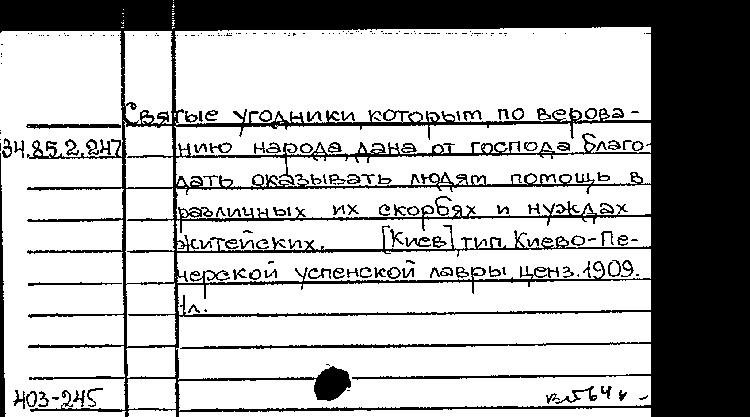 Святые угодники, которым, по верова-
34.85.2.247 нию народа, дана от господа благо-
дать оказывать людям помощь в
различных их скорбях и нуждах
житейских. [Киев], тип. Киево-Пе-
черской успенской лавры, ценз. 1909.
1л.
403-245